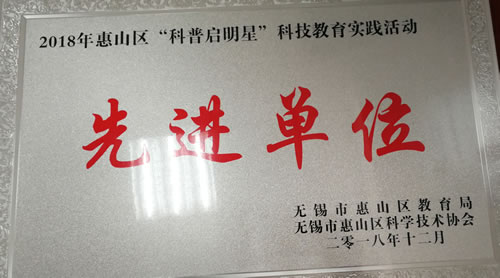 2018年惠山区“科普启明星”科技教育实践活动
先进单位
无锡市惠山区教育局
无锡市惠山区科学技术协会
二零一八年十二月